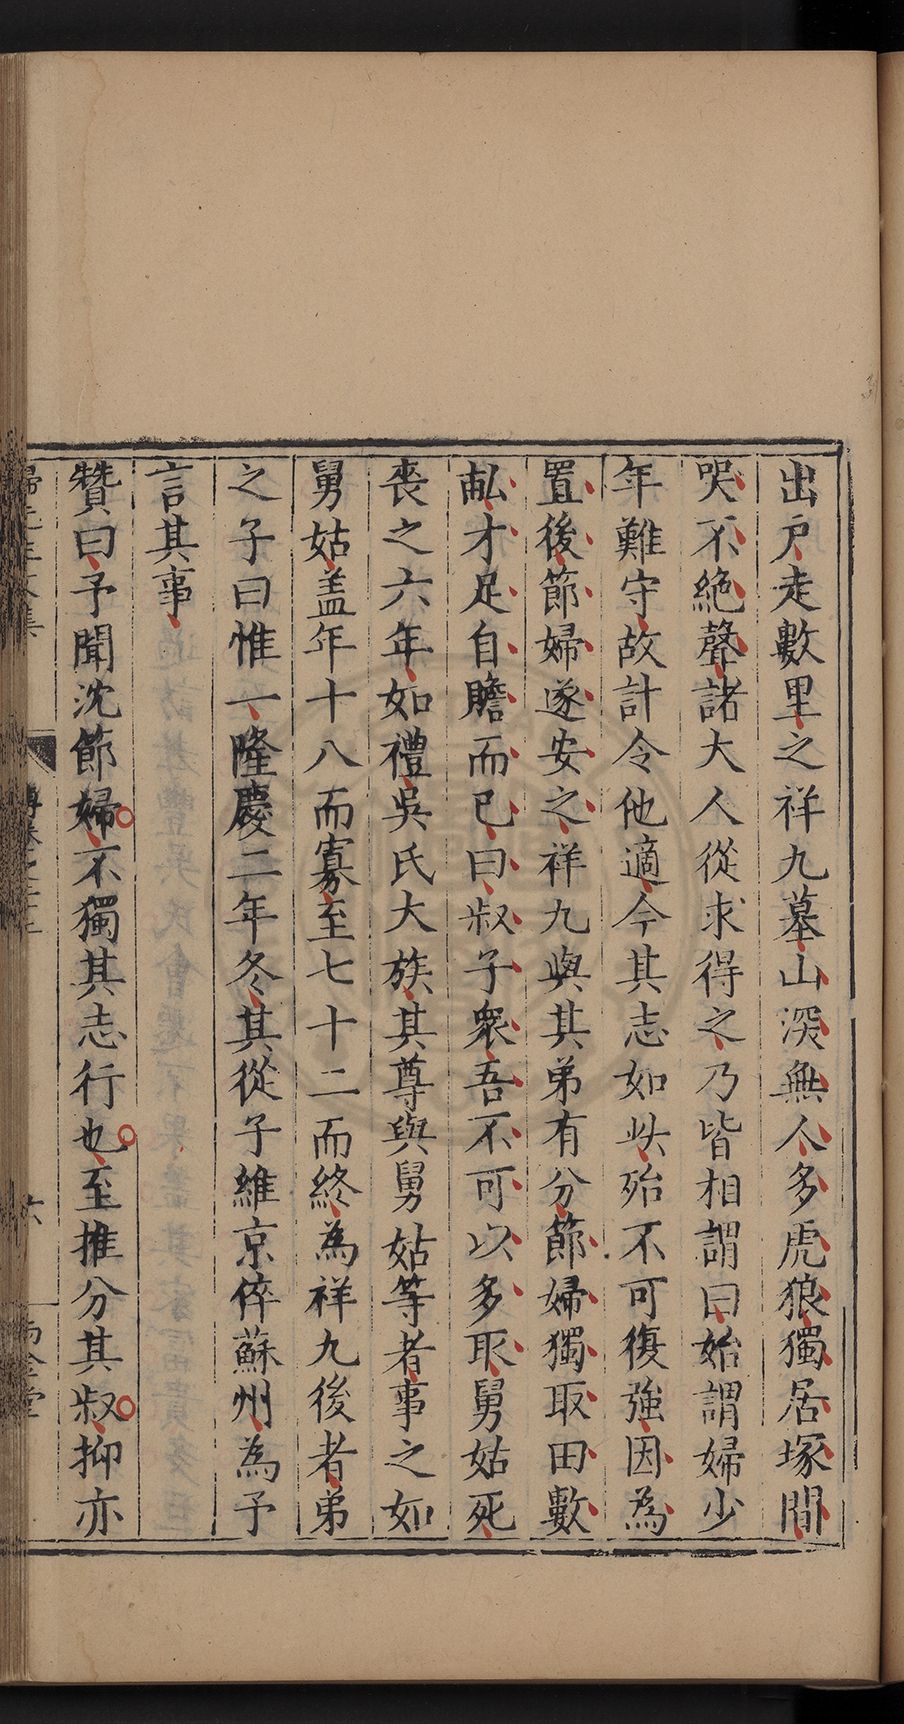 出戶走數里之祥九墓山深無人多虎狼獨居塚間
哭不絕聲諸大人從求得之乃皆相謂曰始謂婦少
年難守故計令他適今其志如此殆不可復強因為
置後節婦遂安之祥九與其弟有分節婦獨取田數
畝才足自贍而已曰叔子衆吾不可以多取舅姑死
喪之六年如禮吳氏大族其尊與舅姑等者事之如
舅姑盖年十八而寡至七十二而終為祥九後者弟
之子曰惟一隆慶二年冬其從子維京倅蘇州為予
言其事
贊曰予聞沈節婦不獨其志行也至推分其叔抑亦